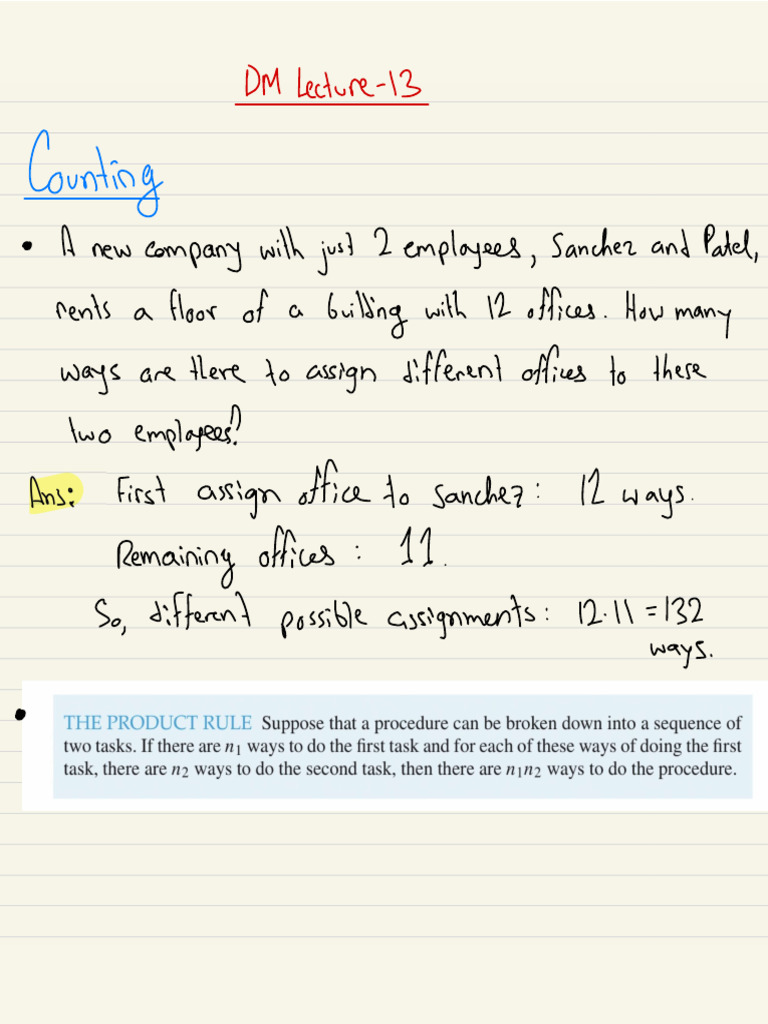 DM Lecture-13
Counting
• A new company with just 2 employees, Sanchez and Patel,
rents a floor of a building with 12 offices. How many
ways are there to assign different offices to these
two employees?
Ans: First assign office to Sanchez: 12 ways.
Remaining offices: 11.
So, different possible assignments: 12·11 = 132
ways.
• THE PRODUCT RULE Suppose that a procedure can be broken down into a sequence of
two tasks. If there are n₁ ways to do the first task and for each of these ways of doing the first
task, there are n₂ ways to do the second task, then there are n₁n₂ ways to do the procedure.